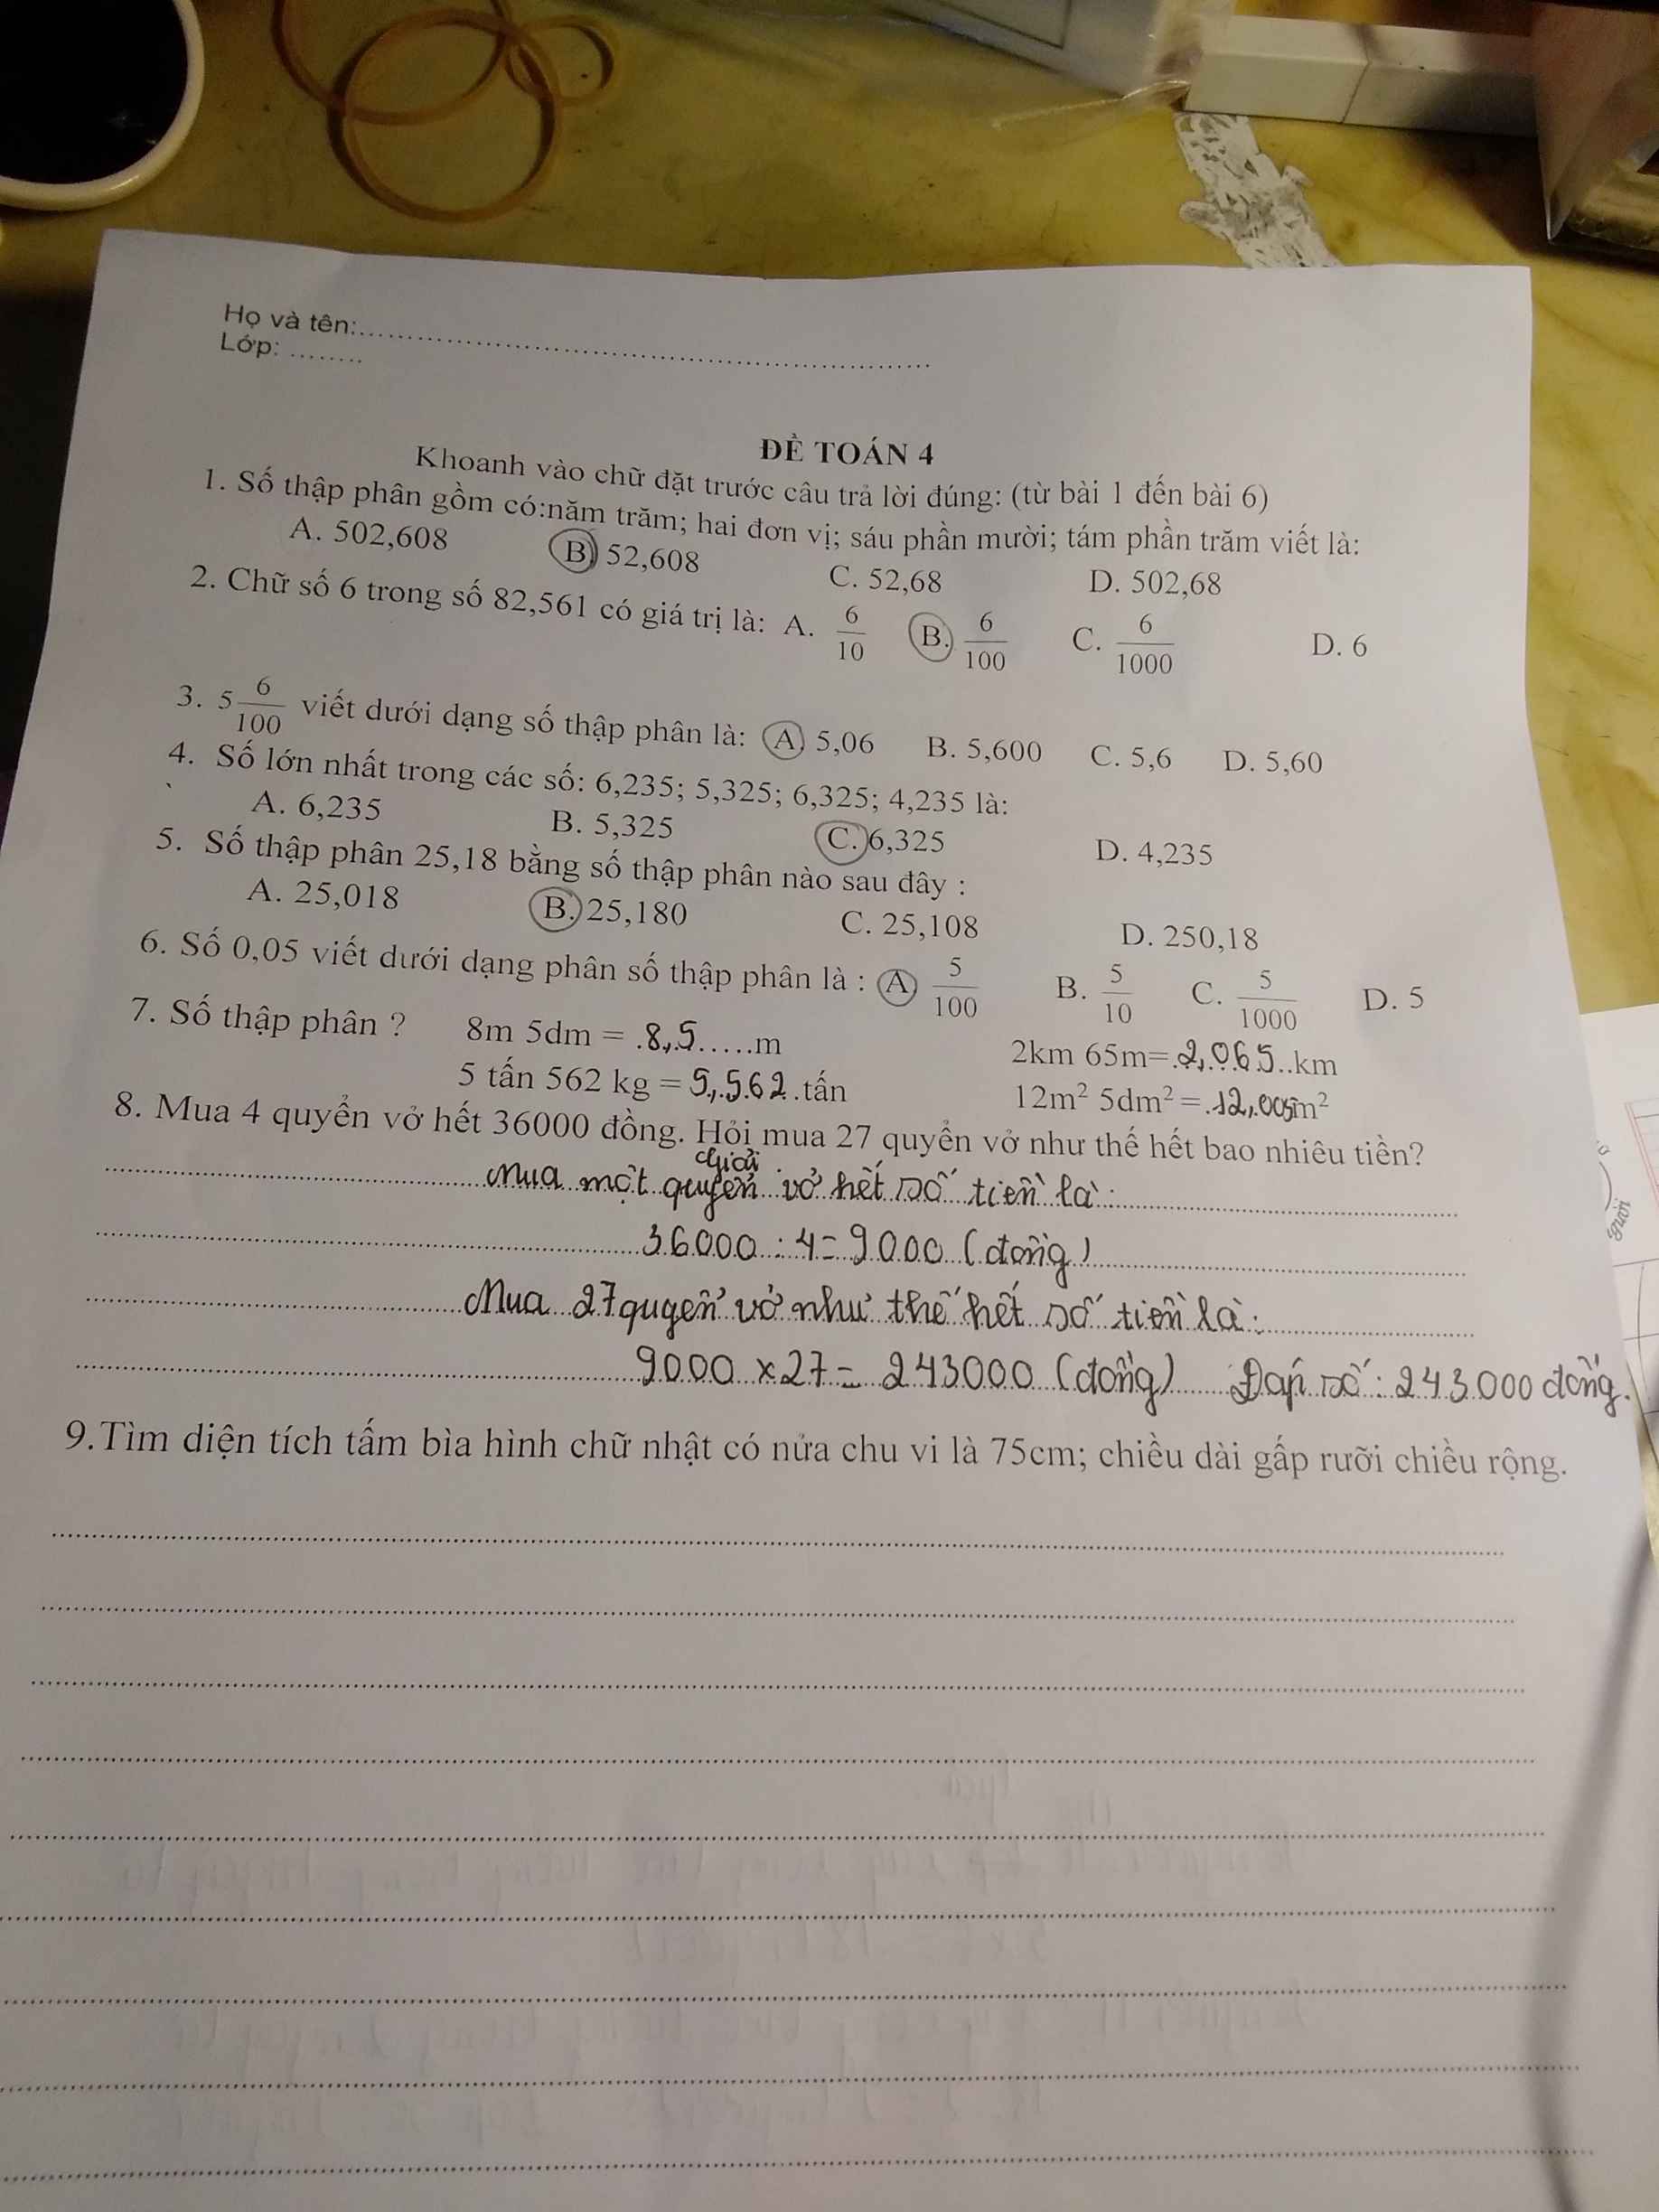 Họ và tên:
Lớp: ........
ĐỀ TOÁN 4
Khoanh vào chữ đặt trước câu trả lời đúng: (từ bài 1 đến bài 6)
1. Số thập phân gồm có:năm trăm; hai đơn vị; sáu phần mười; tám phần trăm viết là:
A. 502,608 B. 52,608 C. 52,68 D. 502,68
2. Chữ số 6 trong số 82,561 có giá trị là: A. 6/10 B. 6/100 C. 6/1000 D. 6
3. 5 6/100 viết dưới dạng số thập phân là: A 5,06 B. 5,600 C. 5,6 D. 5,60
4. Số lớn nhất trong các số: 6,235; 5,325; 6,325; 4,235 là:
A. 6,235 B. 5,325 C. 6,325 D. 4,235
5. Số thập phân 25,18 bằng số thập phân nào sau đây :
A. 25,018 B. 25,180 C. 25,108 D. 250,18
6. Số 0,05 viết dưới dạng phân số thập phân là : A 5/100 B. 5/10 C. 5/1000 D. 5
7. Số thập phân ? 8m 5dm = 8,5 m 2km 65m= 2,065 km
5 tấn 562 kg = 5,562 tấn 12m² 5dm² = 12,005m²
8. Mua 4 quyển vở hết 36000 đồng. Hỏi mua 27 quyển vở như thế hết bao nhiêu tiền?
Giải
Mua một quyển vở hết số tiền là:
36000 : 4 = 9000 (đồng)
Mua 27 quyển vở như thế hết số tiền là:
9000 x 27 = 243000 (đồng) Đáp số: 243000 đồng.
9.Tìm diện tích tấm bìa hình chữ nhật có nửa chu vi là 75cm; chiều dài gấp rưỡi chiều rộng.